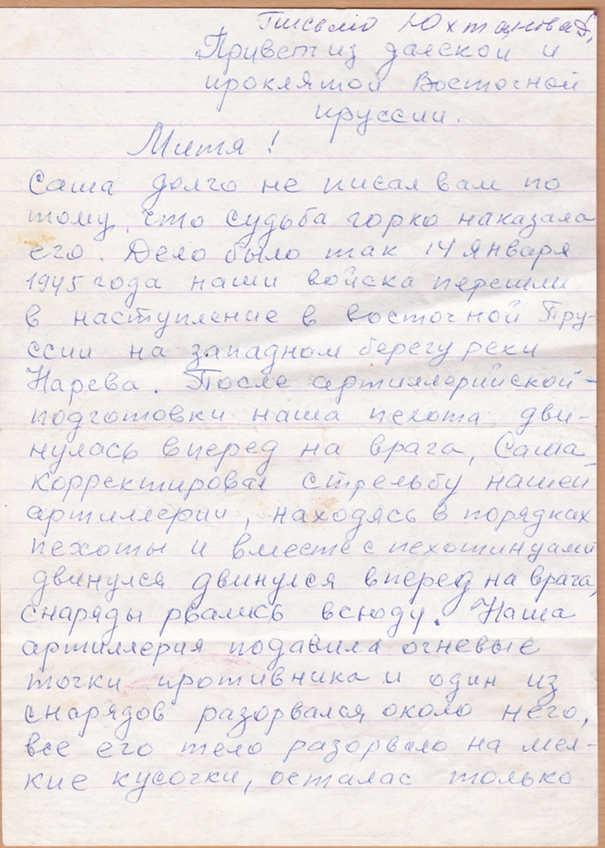 Письмо Юхтанова Д,
Привет из далекой и
проклятой Восточной
пруссии.
Митя!
Саша долго не писал вам по
тому, что судьба горко наказала
его. Дело было так 14 января
1945 года наши войска перешли
в наступление в восточной Пру-
ссии на западном берегу реки
Нарева. После артиллерийской-
подготовки наша пехота дви-
нулась вперед на врага, Саша
корректировал стрельбу нашей
артиллерии, находясь в порядках
пехоты и вместе с пехотинцами
двинулся двинулся вперед на врага,
снаряды рвались всюду. Наша
артиллерия подавила огневые
точки противника и один из
снарядов разорвался около него,
все его тело разорвало на мел-
кие кусочки, осталас только